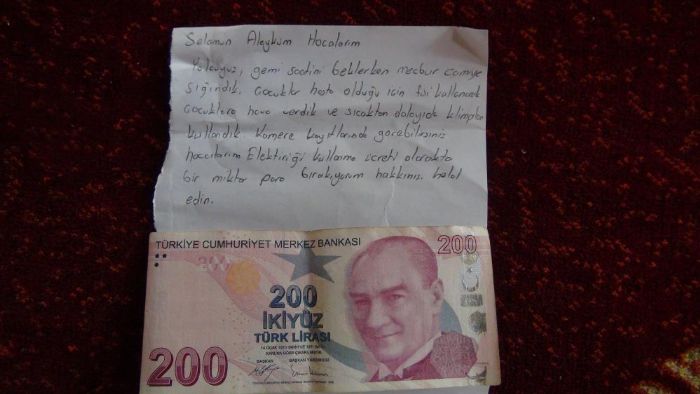 Selamun Aleyküm Hocalarım
Yolcuyuz, gemi saatini beklerken mecbur camiye
sığındık. Çocuklar hasta olduğu için fisi kullanarak
çocuklara hava verdik ve sıcaktan dolayıda klimaları
kullandık kamere kayıtlarında görebilirsiniz
hocalarım Elektiriği kullanma ücreti olarakta
bir miktar para bırakıyorum hakkınızı helal
edin.
TÜRKİYE CUMHURİYET MERKEZ BANKASI
200
200
İKİYÜZ
TÜRK LİRASI
BAŞKAN BAŞKAN YARDIMCISI
200